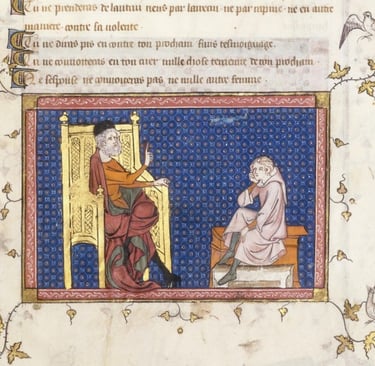 Tu ne prenderas de lautrui riens par larrecin ne par rapine ne en autre
maniere contre sa volente.
Tu ne diras pas en contre ton procham faus tesmoignage.
Tu ne couuoiteras en ton cuer nulle chose terrienne de ton procham.
Ne sespouse ne couuoiteras pas ne nulle autre femme.